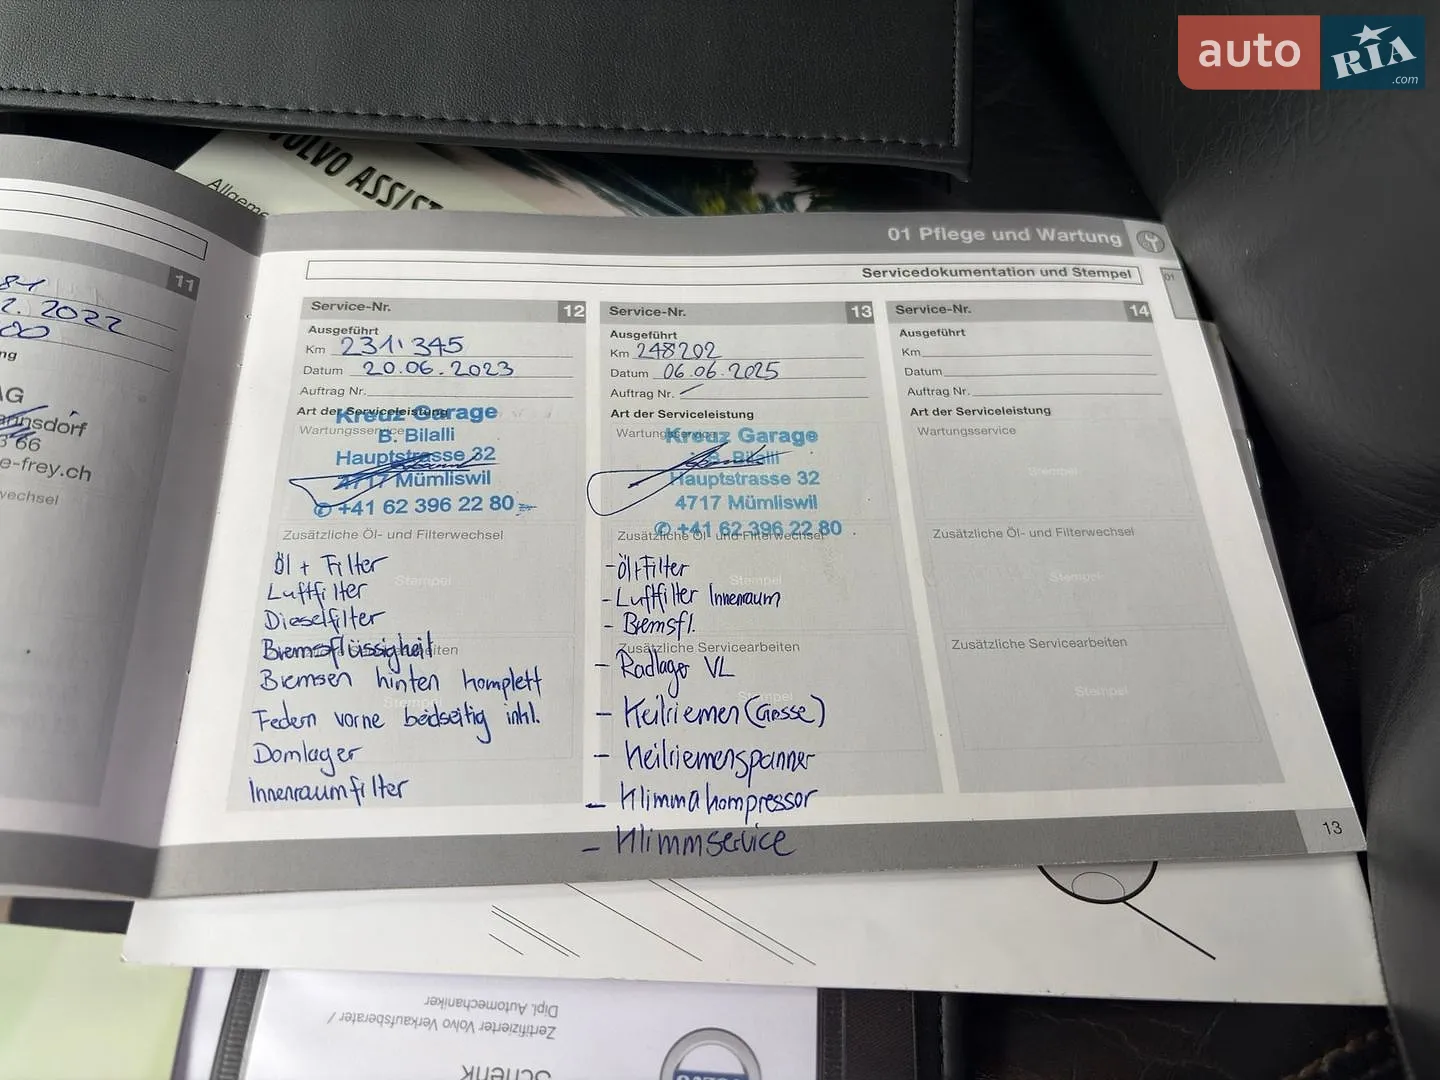 auto RIA .com
VOLVO ASSIST
Allgeme
01 Pflege und Wartung
Servicedokumentation und Stempel
01
11
2. 2022
00
ng
AG
annsdorf
66
e-frey.ch
wechsel
Service-Nr. 12
Ausgeführt
Km 231'345
Datum 20.06.2023
Auftrag Nr.
Art der Serviceleistung
Wartungsservice
Kreuz Garage
B. Bilalli
Hauptstrasse 32
4717 Mümliswil
✆ +41 62 396 22 80
Zusätzliche Öl- und Filterwechsel
Stempel
Öl + Filter
Luftfilter
Dieselfilter
Bremsflüssigkeit
Bremsen hinten komplett
Stempel
Federn vorne beidseitig inkl.
Domlager
Innenraumfilter
Service-Nr. 13
Ausgeführt
Km 248202
Datum 06.06.2025
Auftrag Nr.
Art der Serviceleistung
Wartungsservice
Kreuz Garage
B. Bilalli
Hauptstrasse 32
4717 Mümliswil
✆ +41 62 396 22 80
Zusätzliche Öl- und Filterwechsel
Stempel
- Öl+Filter
- Luftfilter Innenraum
- Bremsfl.
Zusätzliche Servicearbeiten
- Radlager VL
Stempel
- Keilriemen (Grosse)
- Keilriemenspanner
- Klimmakompressor
- Klimmservice
Service-Nr. 14
Ausgeführt
Km
Datum
Auftrag Nr.
Art der Serviceleistung
Wartungsservice
Stempel
Zusätzliche Öl- und Filterwechsel
Stempel
Zusätzliche Servicearbeiten
Stempel
13
Dipl. Automechaniker
Zertifizierter Volvo Verkaufsberater /
Schenk